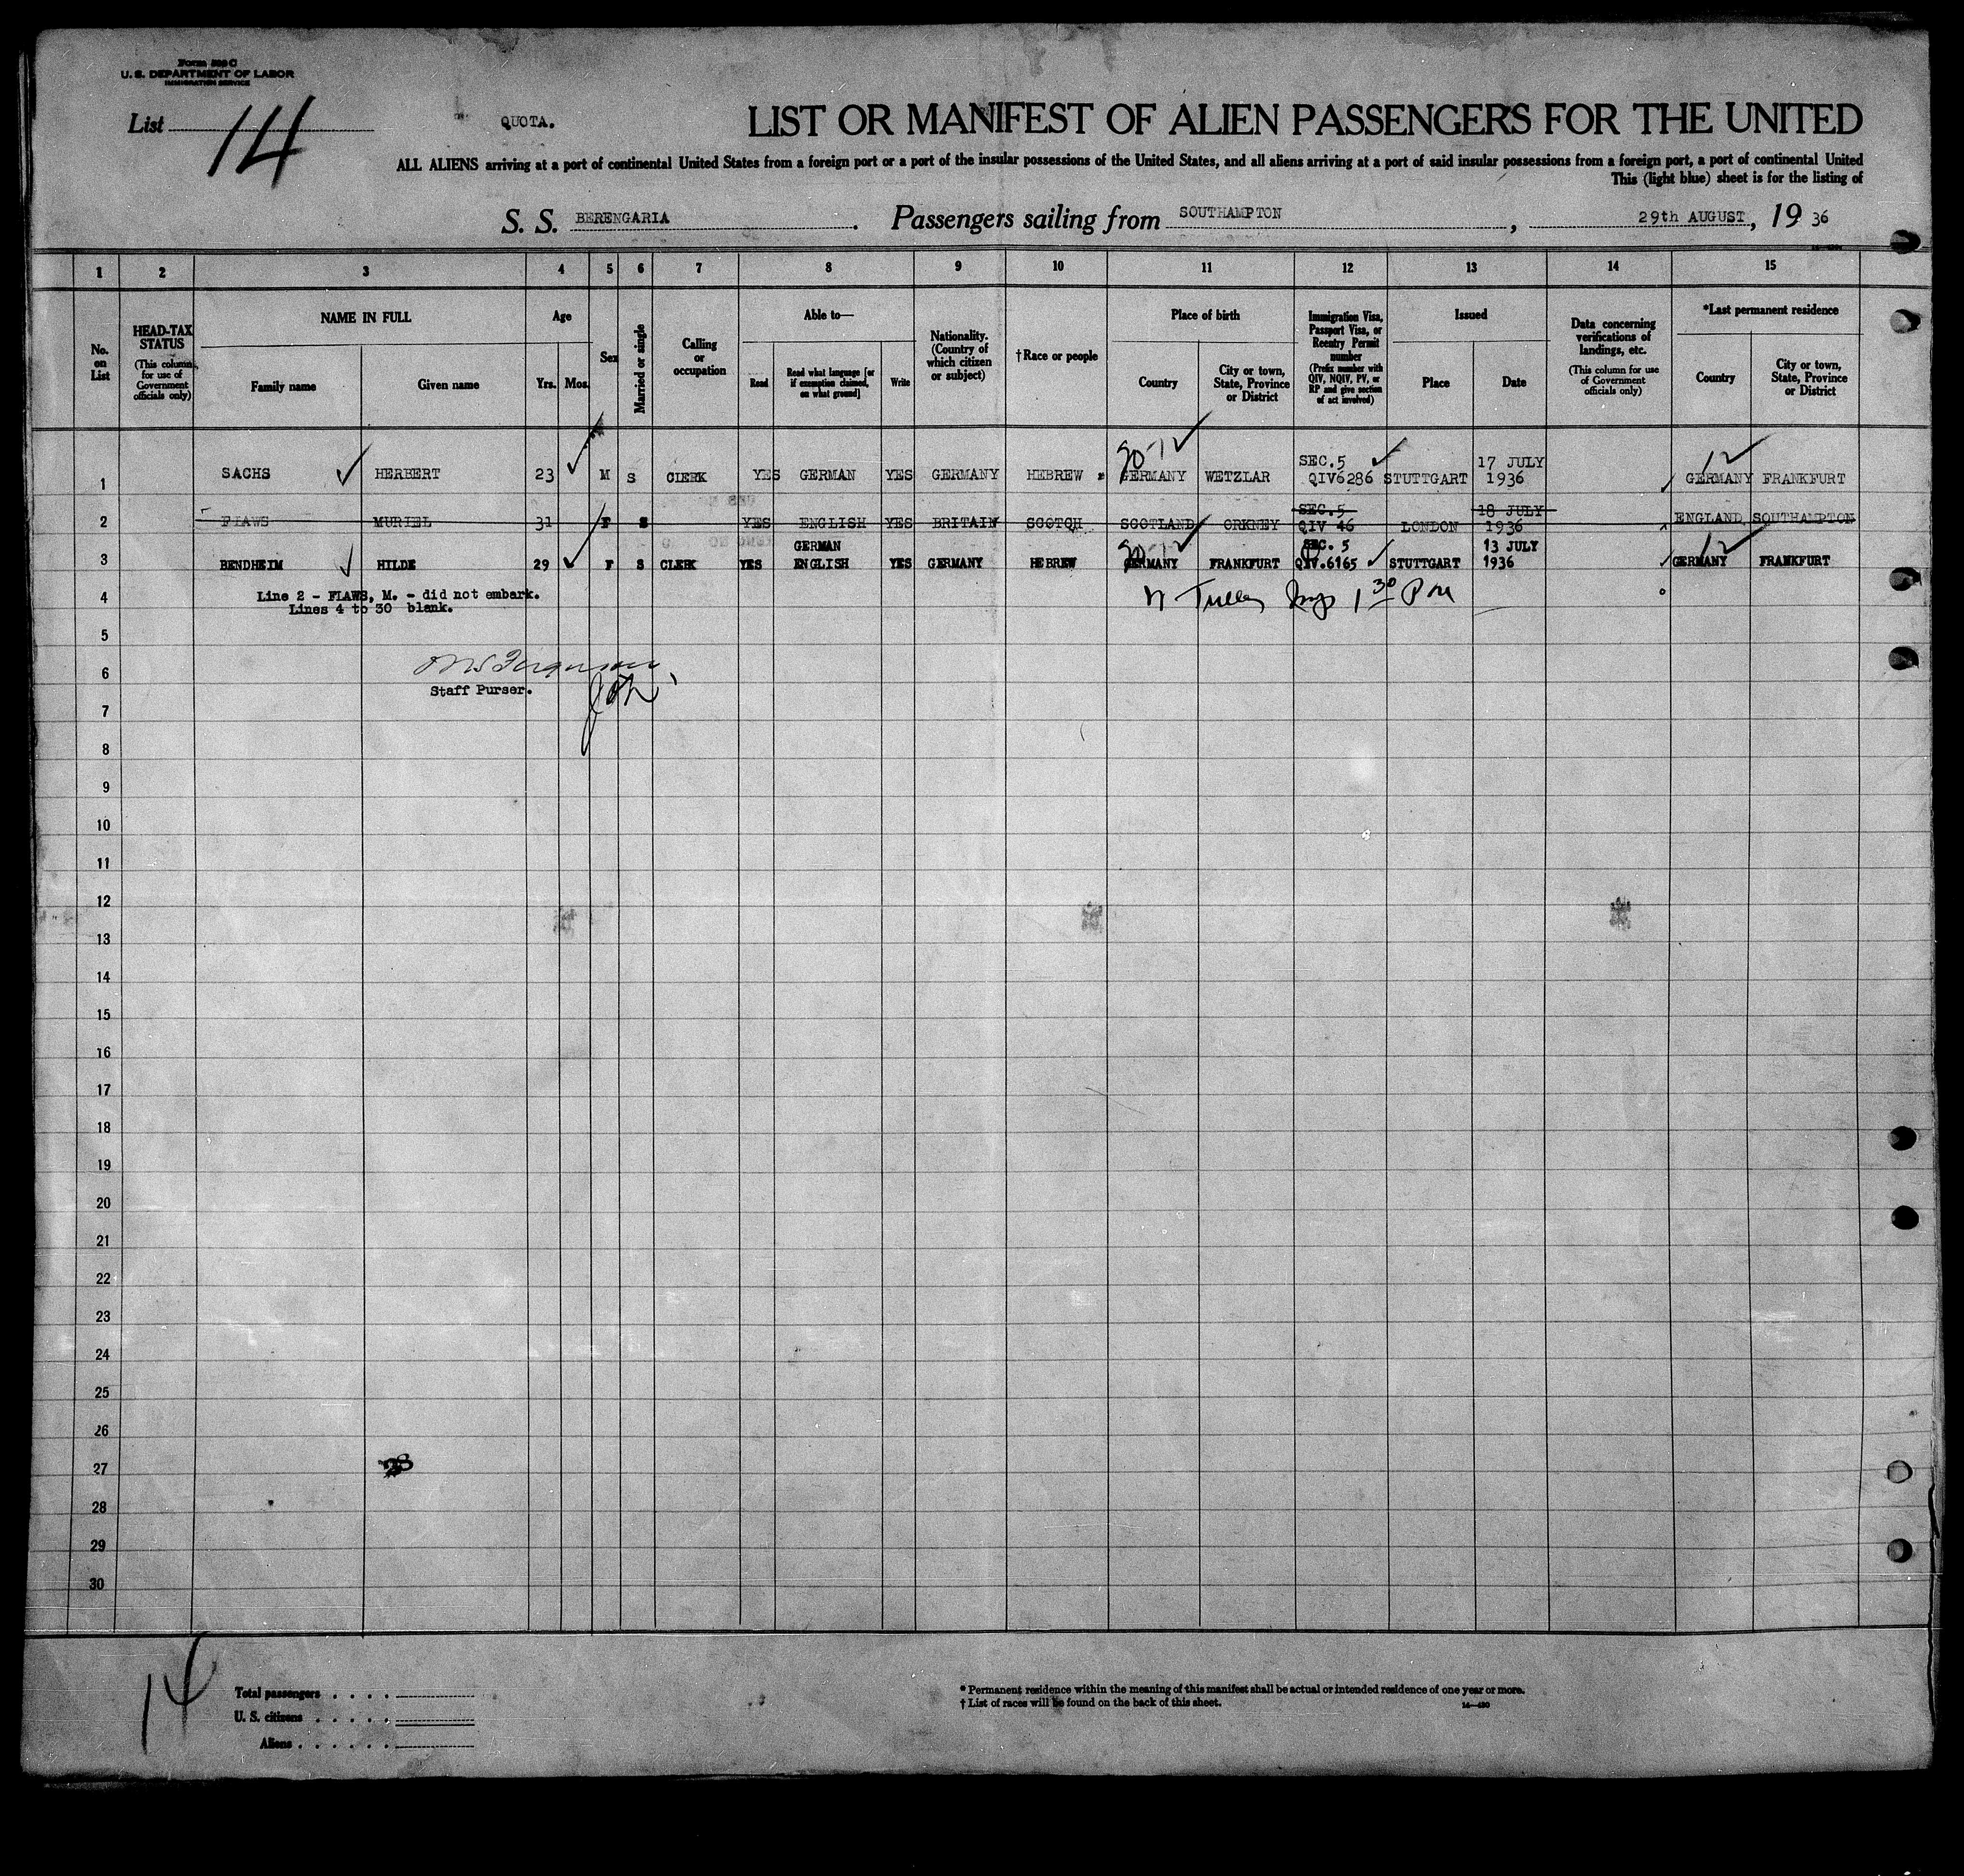 Form 500 C
U. S. DEPARTMENT OF LABOR
IMMIGRATION SERVICE
List 14
QUOTA.
LIST OR MANIFEST OF ALIEN PASSENGERS FOR THE UNITED
ALL ALIENS arriving at a port of continental United States from a foreign port or a port of the insular possessions of the United States, and all aliens arriving at a port of said insular possessions from a foreign port, a port of continental United
This (light blue) sheet is for the listing of
S. S. BERENGARIA. Passengers sailing from SOUTHAMPTON, 29th AUGUST, 19 36
1 2 3 4 5 6 7 8 9 10 11 12 13 14 15
No. on List
HEAD-TAX STATUS
(This column for use of Government officials only)
NAME IN FULL
Family name
Given name
Age
Yrs.
Mos.
Sex
Married or single
Calling or occupation
Able to—
Read
Read what language [or if exemption claimed, on what ground]
Write
Nationality. (Country of which citizen or subject)
†Race or people
Place of birth
Country
City or town, State, Province or District
Immigration Visa, Passport Visa, or Reentry Permit number
(Prefix number with QIV, NQIV, PV, or RP and give section of act involved)
Issued
Place
Date
Data concerning verifications of landings, etc.
(This column for use of Government officials only)
*Last permanent residence
Country
City or town, State, Province or District
1 SACHS HERBERT 23 M S CLERK YES GERMAN YES GERMANY HEBREW GERMANY WETZLAR SEC.5 QIV6286 STUTTGART 17 JULY 1936 GERMANY FRANKFURT
2 FLAWS MURIEL 31 F S YES ENGLISH YES BRITAIN SCOTCH SCOTLAND ORKNEY SEC.5 QIV 46 LONDON 18 JULY 1936 ENGLAND SOUTHAMPTON
3 BENDHEIM HILDE 29 F S CLERK YES GERMAN ENGLISH YES GERMANY HEBREW GERMANY FRANKFURT SEC. 5 QIV.6165 STUTTGART 13 JULY 1936 GERMANY FRANKFURT
4 Line 2 - FLAWS, M. - did not embark.
Lines 4 to 30 blank.
1 30 PM
5
6
Staff Purser.
7
8
9
10
11
12
13
14
15
16
17
18
19
20
21
22
23
24
25
26
27
28
29
30
14
Total passengers
U. S. citizens
Aliens
* Permanent residence within the meaning of this manifest shall be actual or intended residence of one year or more.
† List of races will be found on the back of this sheet.